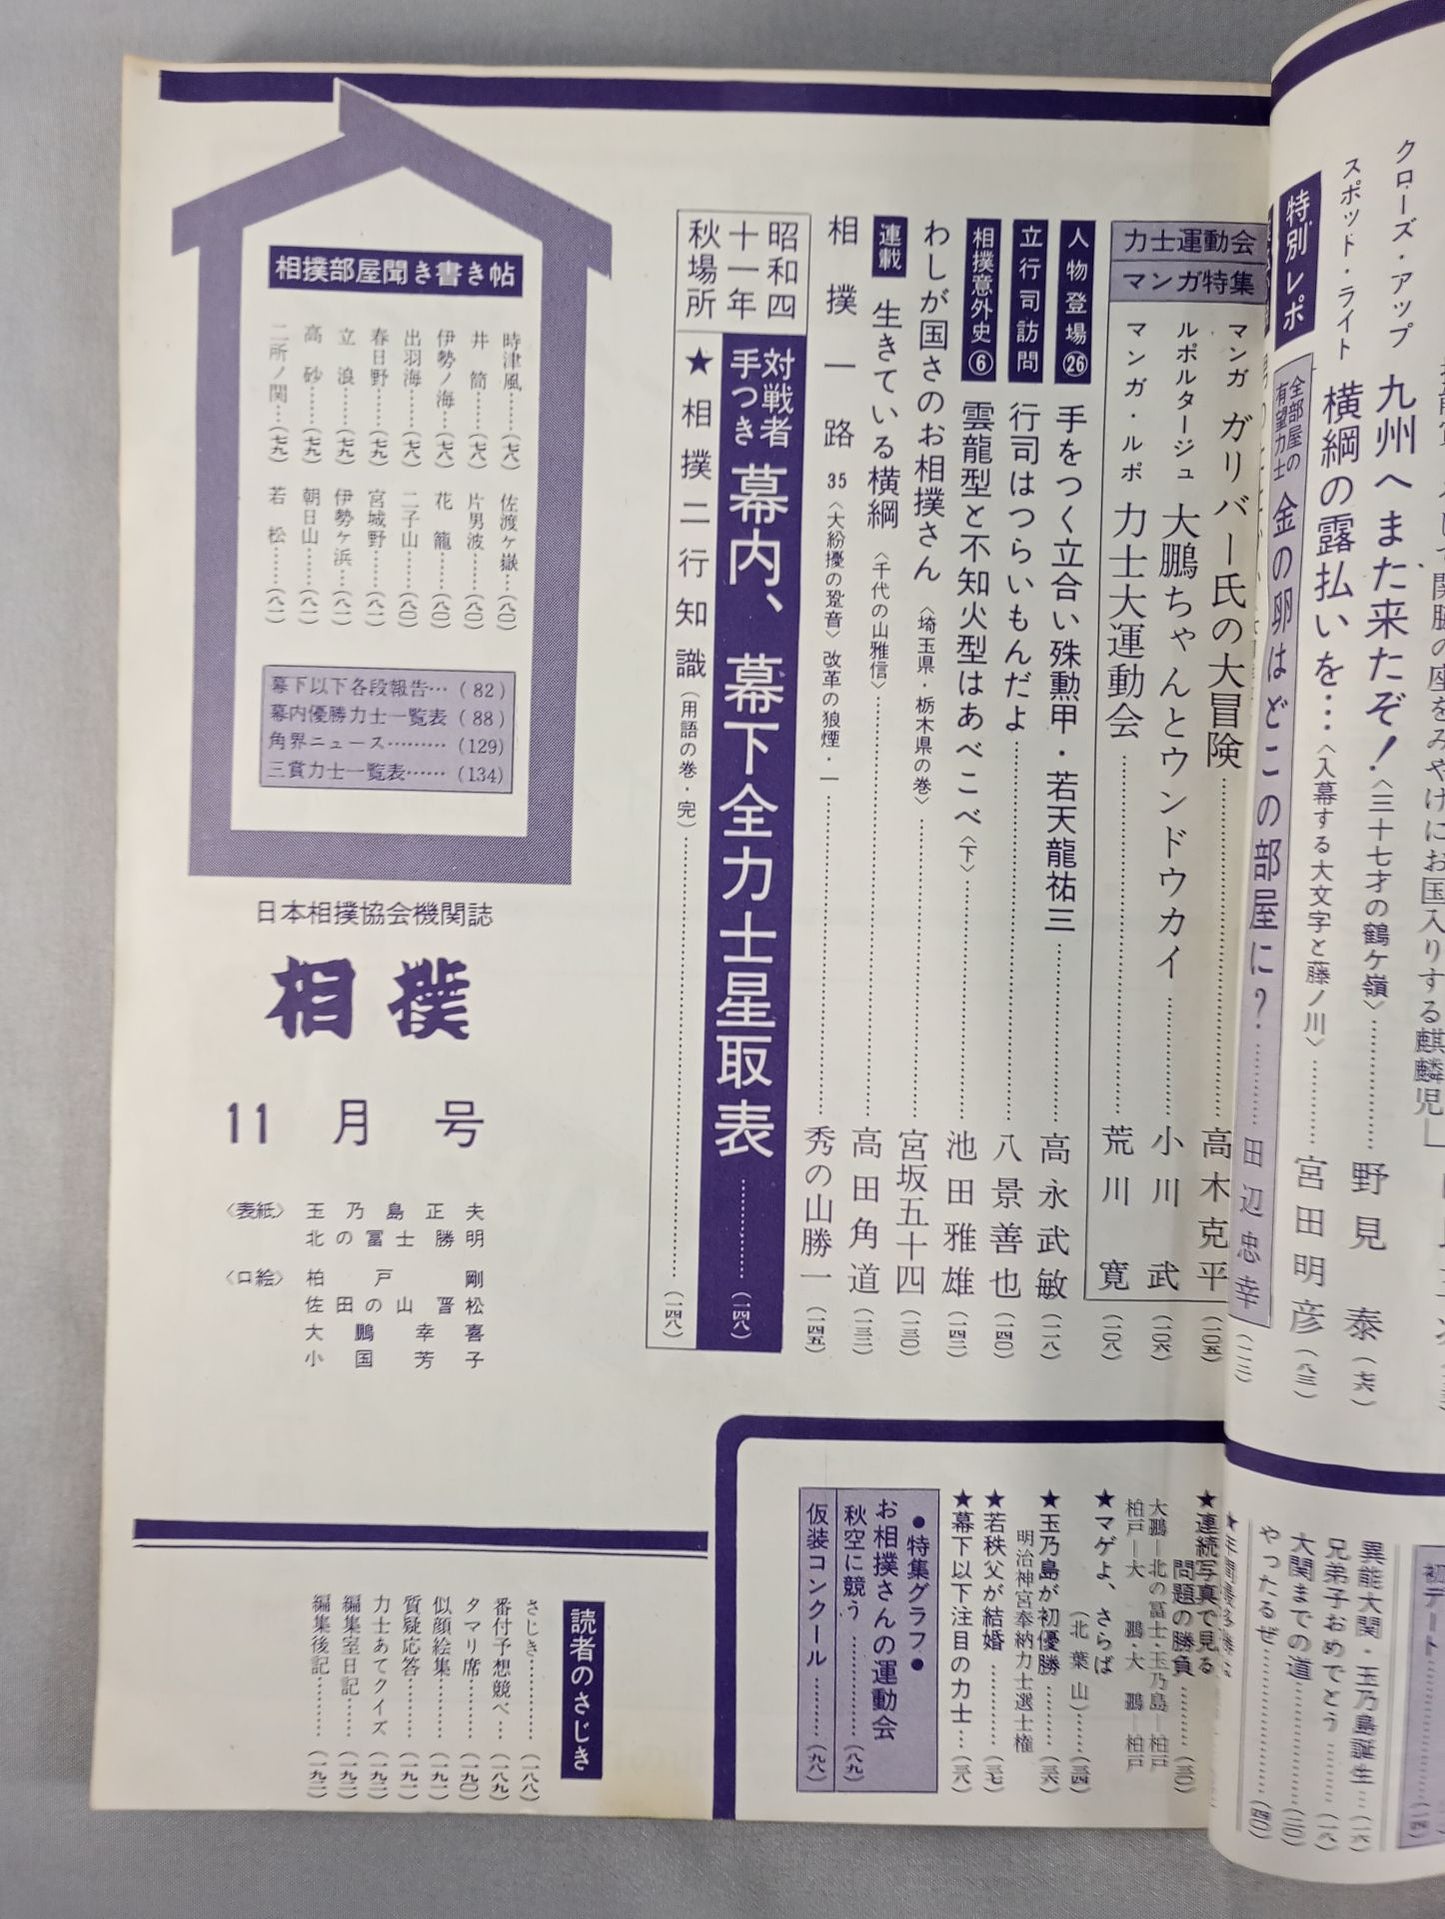 クローズ・アップ 九州へまた来たぞ!〈三十七才の鶴ケ嶺〉………野見 泰(七六)
スポット・ライト 横綱の露払いを…〈入幕する大文字と藤ノ川〉………宮田明彦(八三)
特別レポ 全部屋の有望力士 金の卵はどこの部屋に?………田辺忠幸(一一二)
力士運動会
マンガ特集
マンガ ガリバー氏の大冒険………高木克平(一〇五)
ルポルタージュ 大鵬ちゃんとウンドウカイ………小川 武(一〇六)
マンガ・ルポ 力士大運動会………荒川 寛(一〇八)
人物登場㉖ 手をつく立合い殊勲甲・若天龍祐三………高永武敏(一一八)
立行司訪問 行司はつらいもんだよ………八景善也(一四〇)
相撲意外史⑥ 雲龍型と不知火型はあべこべ〈下〉………池田雅雄(一四二)
わしが国さのお相撲さん〈埼玉県・栃木県の巻〉………宮坂五十四(一三〇)
連載 生きている横綱〈千代の山雅信〉………高田角道(一三二)
相撲一路 35〈大紛擾の跫音〉改革の狼煙・一………秀の山勝一(一四五)
昭和四十一年秋場所
対戦者手つき 幕内、幕下全力士星取表………(一四八)
★相撲二行知識(用語の巻・完)………(一四八)
相撲部屋聞き書き帖
時津風……(七八)
井筒……(七八)
伊勢ノ海…(七八)
出羽海……(七八)
春日野……(七九)
立浪……(七九)
高砂……(七九)
二所ノ関…(七九)
佐渡ケ嶽…(八〇)
片男波……(八〇)
花籠……(八〇)
二子山……(八〇)
宮城野……(八一)
伊勢ヶ浜…(八一)
朝日山……(八一)
若松……(八一)
幕下以下各段報告…(82)
幕内優勝力士一覧表(88)
角界ニュース………(129)
三賞力士一覧表……(134)
日本相撲協会機関誌
相撲
11月号
〈表紙〉玉乃島正夫
北の冨士勝明
〈口絵〉柏戸剛
佐田の山晋松
大鵬幸喜
小国芳子
異能大関・玉乃島誕生…(一六)
兄弟子おめでとう……(一八)
大関までの道………(二〇)
やったるぜ………(四〇)
★連続写真で見る
問題の勝負………(三〇)
大鵬―北の冨士・玉乃島―柏戸
柏戸―大鵬・大鵬―柏戸
★マゲよ、さらば
(北葉山)……(三四)
★玉乃島が初優勝………(三六)
明治神宮奉納力士選士権
★若秩父が結婚………(三七)
★幕下以下注目の力士…(三八)
●特集グラフ●
お相撲さんの運動会
秋空に競う………(八九)
仮装コンクール………(九八)
読者のさじき
さじき………(一八八)
番付予想競べ…(一八九)
タマリ席………(一九〇)
似顔絵集………(一九一)
質疑応答………(一九一)
力士あてクイズ(一九二)
編集室日記……(一九二)
編集後記………(一九二)